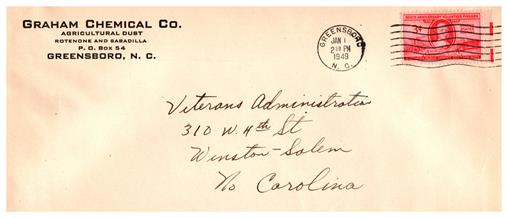 GRAHAM CHEMICAL CO.
AGRICULTURAL DUST
ROTENONE AND SABADILLA
P. O. BOX 54
GREENSBORO, N. C.
GREENSBORO
JAN 1
2 30 PM
1949
N. C.
300TH ANNIVERSARY VOLUNTEER FIREMEN
3¢
Veterans Administration
310 W. 4th St
Winston-Salem
No Carolina